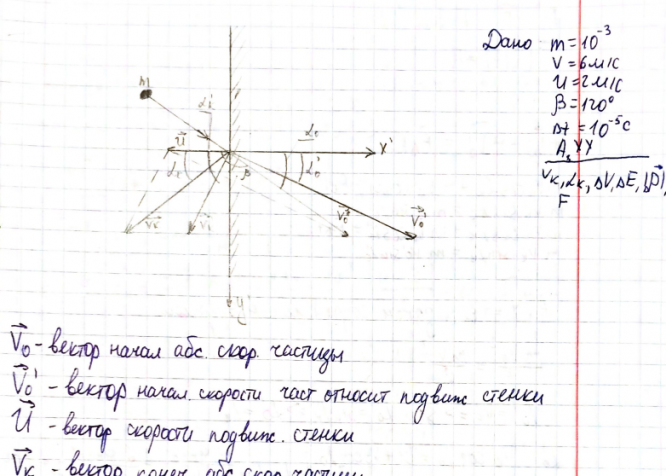 Дано m=10⁻³
V=6м/с
U=2м/с
β=120°
Δt=10⁻⁵с
Vк, αк, ΔV, ΔE, |ΔP|,
F
m
X'
β
V⃗₀ - вектор начал абс. скор. частицы
V⃗₀' - вектор начал. скорости част относит подвиж стенки
U⃗ - вектор скорости подвиж. стенки
V⃗к - вектор конеч. абс скор частицы